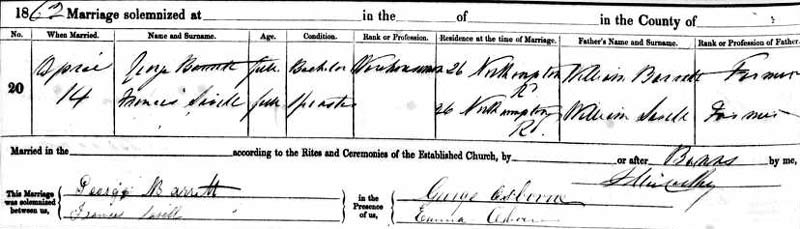 1862 Marriage solemnized at in the of in the County of
No. When Married. Name and Surname. Age. Condition. Rank or Profession. Residence at the time of Marriage. Father's Name and Surname. Rank or Profession of Father.
20 April 14 George Barrett full Bachelor Warehouseman 26 Northampton R William Barrett Farmer
Frances Savill full Spinster 26 Northampton Rd William Savill Farmer
Married in the according to the Rites and Ceremonies of the Established Church, by or after Banns by me,
This Marriage was solemnized between us, George Barrett Frances Savill in the Presence of us, George Osborne Emma Osborn